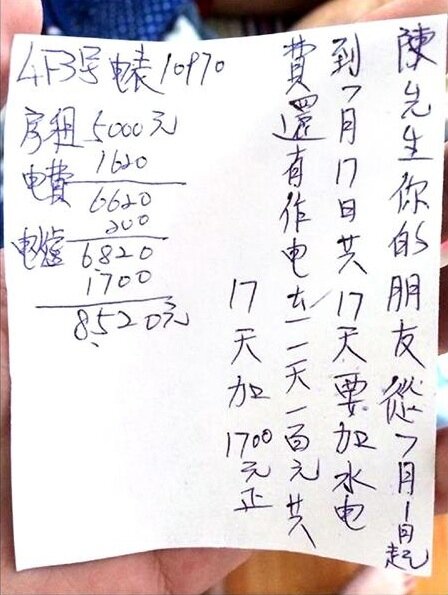 陳先生你的朋友從7月1日起
到7月17日共17天要加水电
費還有作电去一天一百元共
17天加1700元正
4F3号电表10970
房租5000元
电費1620
6620
电爐200
6820
1700
8520元